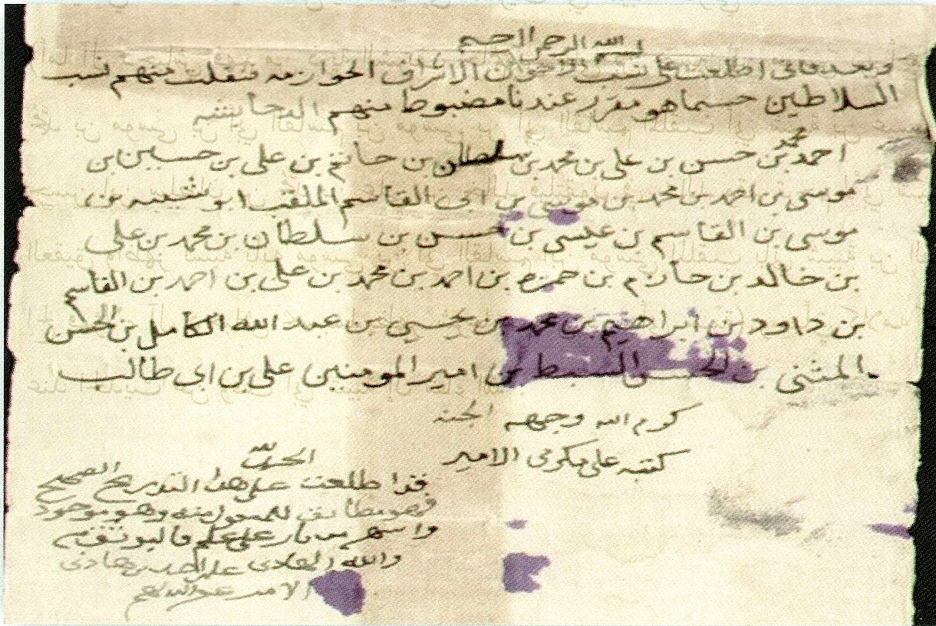 بسم الله الرحمن الرحيم
وبعد فاني اطلعت على نسب الاخوان الاشراف الحوازمه فنقلت منهم نسب
السلاطين حسبما هو مقرر عندنا مضبوط منهم
احمد محمد بن حسن بن علي بن محمد بن سلطان بن حاتم بن علي بن حسين بن
موسى بن احمد بن محمد بن موسى بن ابي القاسم الملقب ابو شيبه بن
موسى بن القاسم بن عيسى بن حسن بن سلطان بن محمد بن علي
بن خالد بن حازم بن حمزه بن احمد بن محمد بن علي بن احمد بن القاسم
بن داود بن ابراهيم بن محمد بن يحيى بن عبد الله الكامل بن الحسن
المثنى بن الحسن السبط بن امير المومنين علي بن ابي طالب
كرم الله وجهه الجنه
كتبه علي الامير
الحمد لله
قد اطلعت على هذا التدريج الصحيح
فهو مطابق للمنقول منه وهو موجود
واشهر من نار على علم
والله الهادي
الامير